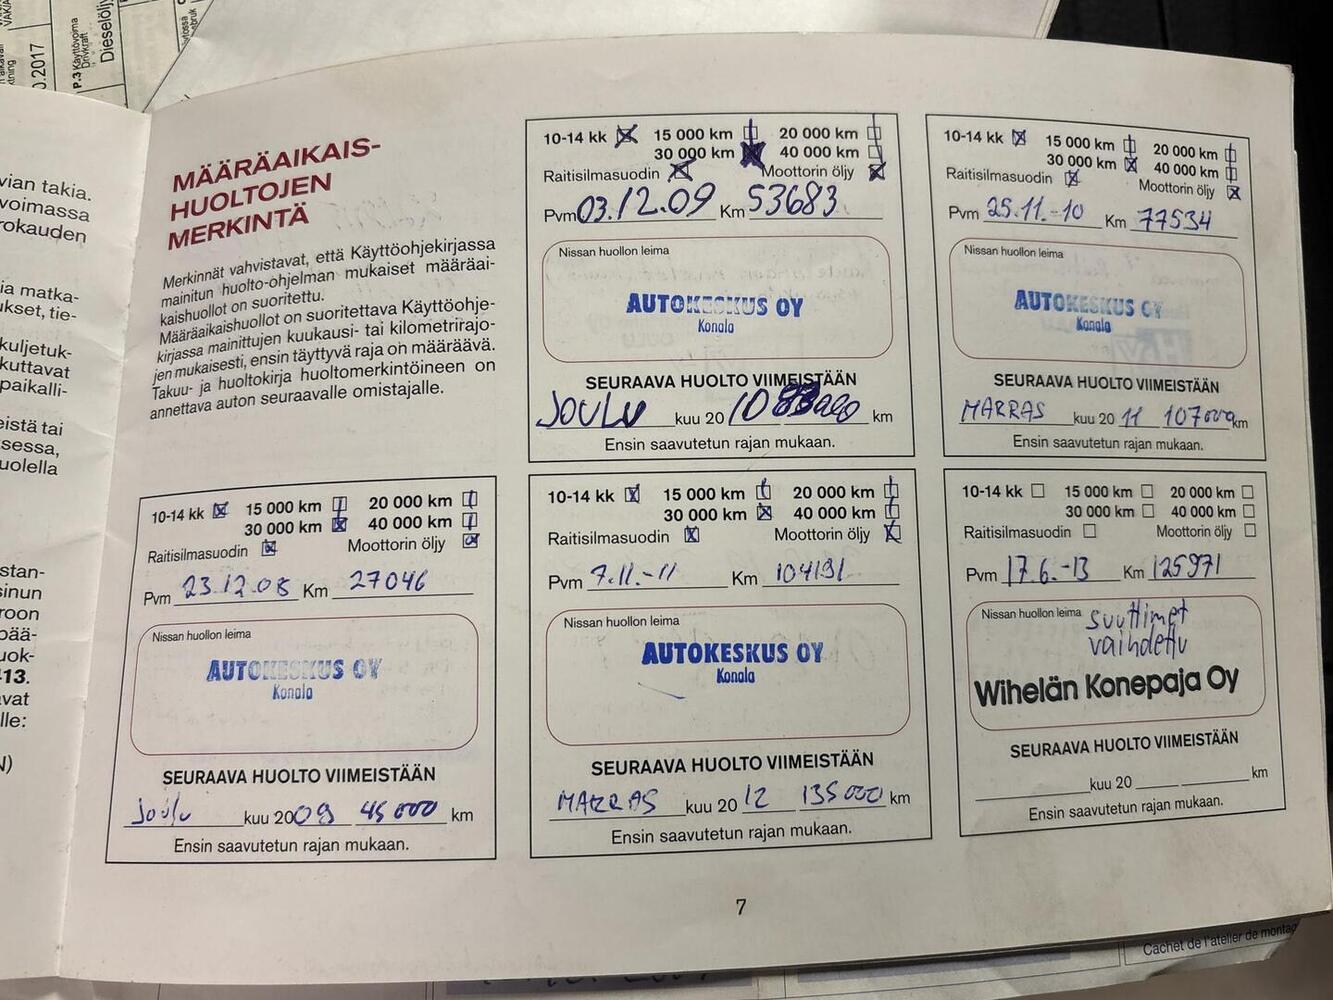 0.2017
P.3 Käyttövoima
Drivkraft
Dieselölj
vian takia.
voimassa
rokauden
ia matka-
ukset, tie-
kuljetuk-
kuttavat
paikalli-
eistä tai
sessa,
uolella
stan-
sinun
roon
pää-
uok-
413.
avat
lle:
N)
MÄÄRÄAIKAIS-
HUOLTOJEN
MERKINTÄ
Merkinnät vahvistavat, että Käyttöohjekirjassa
mainitun huolto-ohjelman mukaiset määräai-
kaishuollot on suoritettu.
Määräaikaishuollot on suoritettava Käyttöohje-
kirjassa mainittujen kuukausi- tai kilometrirajo-
jen mukaisesti, ensin täyttyvä raja on määräävä.
Takuu- ja huoltokirja huoltomerkintöineen on
annettava auton seuraavalle omistajalle.
10-14 kk 15 000 km 20 000 km
30 000 km 40 000 km
Raitisilmasuodin Moottorin öljy
Pvm 23.12.08 Km 27046
Nissan huollon leima
AUTOKESKUS OY
Konala
SEURAAVA HUOLTO VIIMEISTÄÄN
Joulu kuu 2009 45 000 km
Ensin saavutetun rajan mukaan.
10-14 kk 15 000 km 20 000 km
30 000 km 40 000 km
Raitisilmasuodin Moottorin öljy
Pvm 03.12.09 Km 53683
Nissan huollon leima
AUTOKESKUS OY
Konala
SEURAAVA HUOLTO VIIMEISTÄÄN
JOULU kuu 20 10 km
Ensin saavutetun rajan mukaan.
10-14 kk 15 000 km 20 000 km
30 000 km 40 000 km
Raitisilmasuodin Moottorin öljy
Pvm 25.11.-10 Km 77534
Nissan huollon leima
AUTOKESKUS OY
Konala
SEURAAVA HUOLTO VIIMEISTÄÄN
MARRAS kuu 20 11 107000 km
Ensin saavutetun rajan mukaan.
10-14 kk 15 000 km 20 000 km
30 000 km 40 000 km
Raitisilmasuodin Moottorin öljy
Pvm 7.11.-11 Km 104191
Nissan huollon leima
AUTOKESKUS OY
Konala
SEURAAVA HUOLTO VIIMEISTÄÄN
MARRAS kuu 20 12 135 000 km
Ensin saavutetun rajan mukaan.
10-14 kk 15 000 km 20 000 km
30 000 km 40 000 km
Raitisilmasuodin Moottorin öljy
Pvm 17.6.-13 Km 125971
Nissan huollon leima suuttimet
vaihdettu
Wihelän Konepaja Oy
SEURAAVA HUOLTO VIIMEISTÄÄN
kuu 20 km
Ensin saavutetun rajan mukaan.
7
Cachet de l'atelier de montag